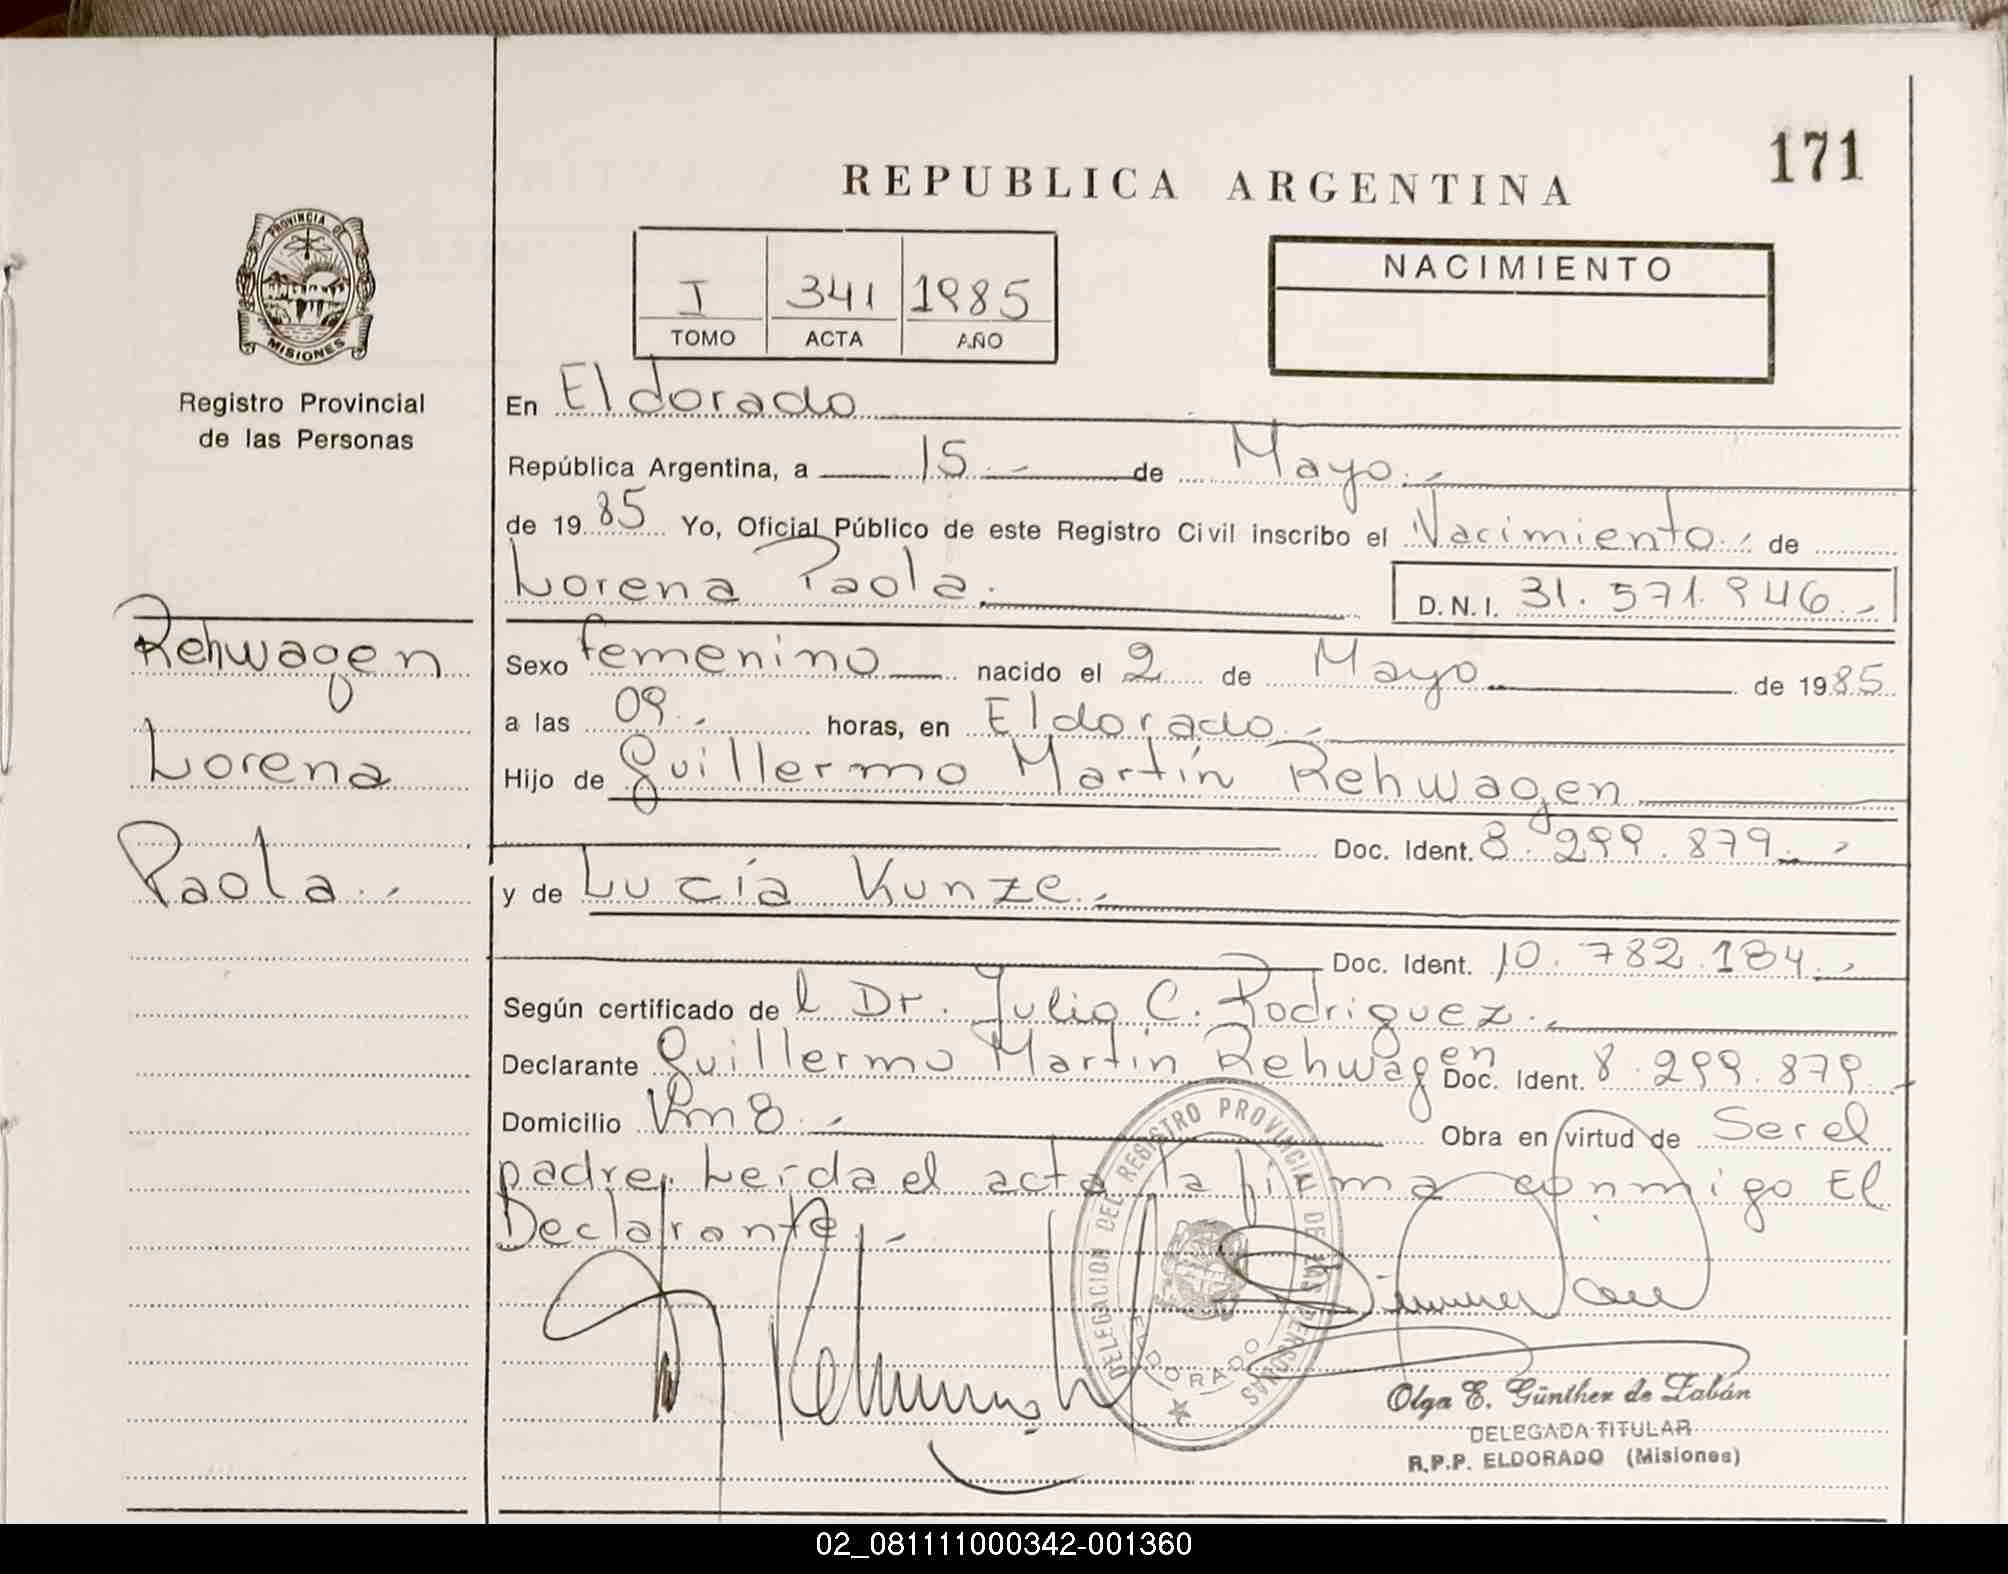 171
REPUBLICA ARGENTINA
PROVINCIA DE
MISIONES
Registro Provincial
de las Personas
I 341 1985
TOMO ACTA AÑO
NACIMIENTO
En Eldorado
República Argentina, a 15.- de Mayo.-
de 1985 Yo, Oficial Público de este Registro Civil inscribo el Nacimiento.- de
Lorena Paola.- D.N.I. 31.571.946.-
Rehwagen
Lorena
Paola.-
Sexo femenino nacido el 2 de Mayo de 1985
a las 09.- horas, en Eldorado.-
Hijo de Guillermo Martín Rehwagen
Doc. Ident. 8.299.879.-
y de Lucía Kunze.-
Doc. Ident. 10.782.184.-
Según certificado de l Dr. Julio C. Rodriguez.-
Declarante Guillermo Martín Rehwagen Doc. Ident. 8.299.879.-
Domicilio Km 8.- Obra en virtud de Ser el
padre. Leída el acta la firma conmigo El
Declarante.-
DELEGACION DEL REGISTRO PROVINCIAL DE LAS PERSONAS
ELDORADO
Olga E. Günther de Zabán
DELEGADA TITULAR
R.P.P. ELDORADO (Misiones)
02_081111000342-001360